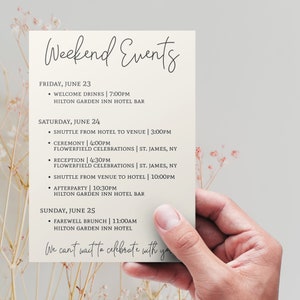 Weekend Events
FRIDAY, JUNE 23
• WELCOME DRINKS | 7:00PM
HILTON GARDEN INN HOTEL BAR
SATURDAY, JUNE 24
• SHUTTLE FROM HOTEL TO VENUE | 3:00PM
• CEREMONY | 4:00PM
FLOWERFIELD CELEBRATIONS | ST. JAMES, NY
• RECEPTION | 4:30PM
FLOWERFIELD CELEBRATIONS | ST. JAMES, NY
• SHUTTLE FROM VENUE TO HOTEL | 10:00PM
• AFTERPARTY | 10:30PM
HILTON GARDEN INN HOTEL BAR
SUNDAY, JUNE 25
• FAREWELL BRUNCH | 11:00AM
HILTON GARDEN INN HOTEL
We can't wait to celebrate with